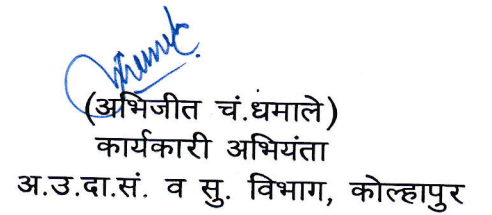 (अभिजीत चं.धमाले)
कार्यकारी अभियंता
अ.उ.दा.सं. व सु. विभाग, कोल्हापुर